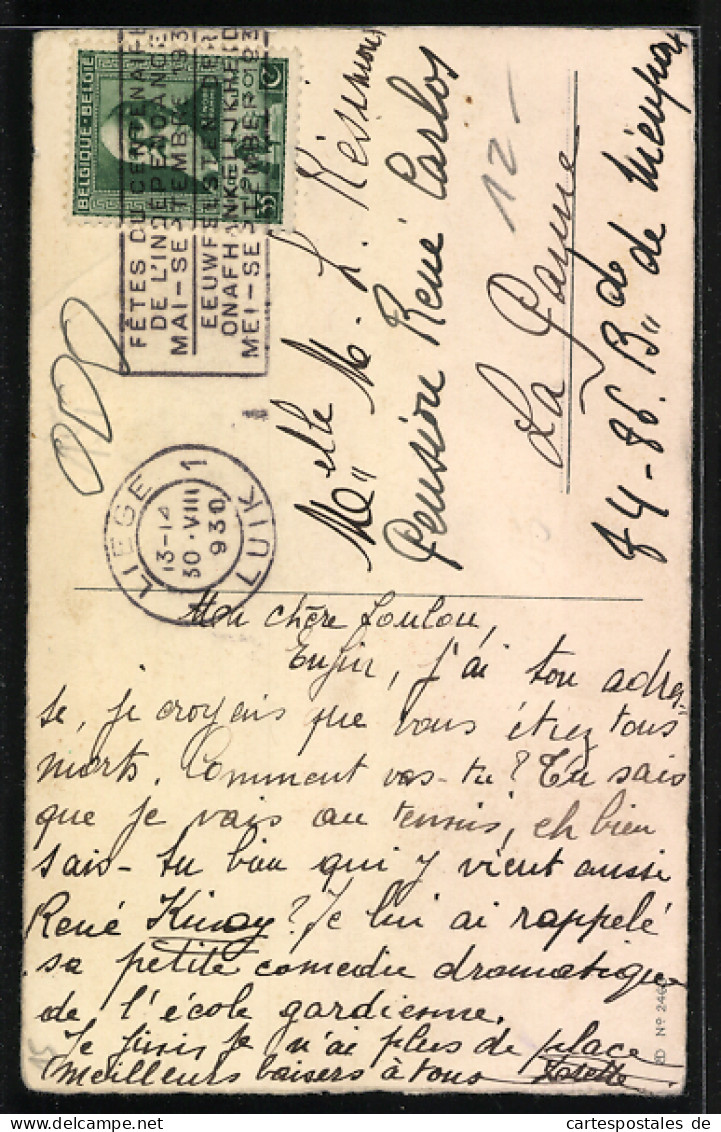 BELGIQUE-BELGIË
35
FÊTES DU CENTENAIRE
DE L'INDÉPENDANCE
MAI-SEPTEMBRE 193
EEUWFEESTEN DER
ONAFHANKELIJKHEID
MEI-SEPTEMBER 193
LIEGE 1
13-14
30·VIII
930
LUIK
12-
Melle M. L.
Pension René Carlos
La Panne
84-86. Bd de Nieuport
Mon chère Loulou,
Enfin, j'ai ton adres=
se, je croyais que vous étiez tous
morts. Comment vas-tu? Tu sais
que je vais au tennis, eh bien
sais-tu bien qui y vient aussi
René Kinoy? Je lui ai rappelé
sa petite comedie dramatique
de l'école gardienne.
Je finis je n'ai plus de place
Meilleurs baisers à tous
cartespostales-de.com